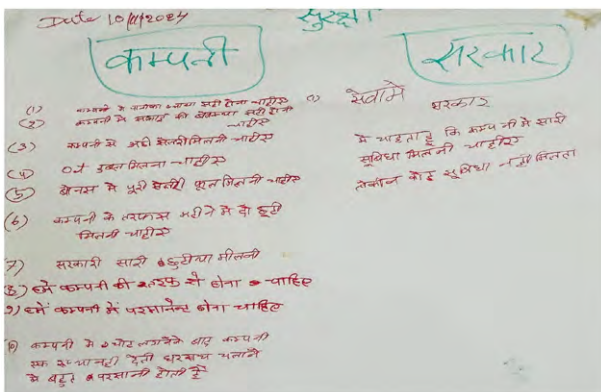 Date 10/11/2024
सुरक्षा
कम्पनी
(1) कम्पनी में चाहीए
(2) कम्पनी में सफाई की बेवस्था सही होनी
चाहीए
(3) कम्पनी से सही सेलरी मिलनी चाहीए
(4) O.t डबल मिलना चाहीए
(5) बोनस में पूरी सेलरी मिलनी चाहीए
(6) कम्पनी के तरफ से महीने में दो छूटी
मिलनी चाहीए
7) सरकारी सारी छुटीया मीलनी
8) हमें कम्पनी की तरफ से होना चाहिए
9) हमें कम्पनी में परमानेन्ट होना चाहिए
10) कम्पनी में चोट लगने के बाद कम्पनी
एक रूपया नही देती घर चलाने
में बहुत परसानी होती है
सरकार
1) सेवामे
सरकार
मै चाहता हु कि कम्पनी मे सारी
सुविधा मिलनी चाहीए
लेकीन कोई सुविधा नही मिलता